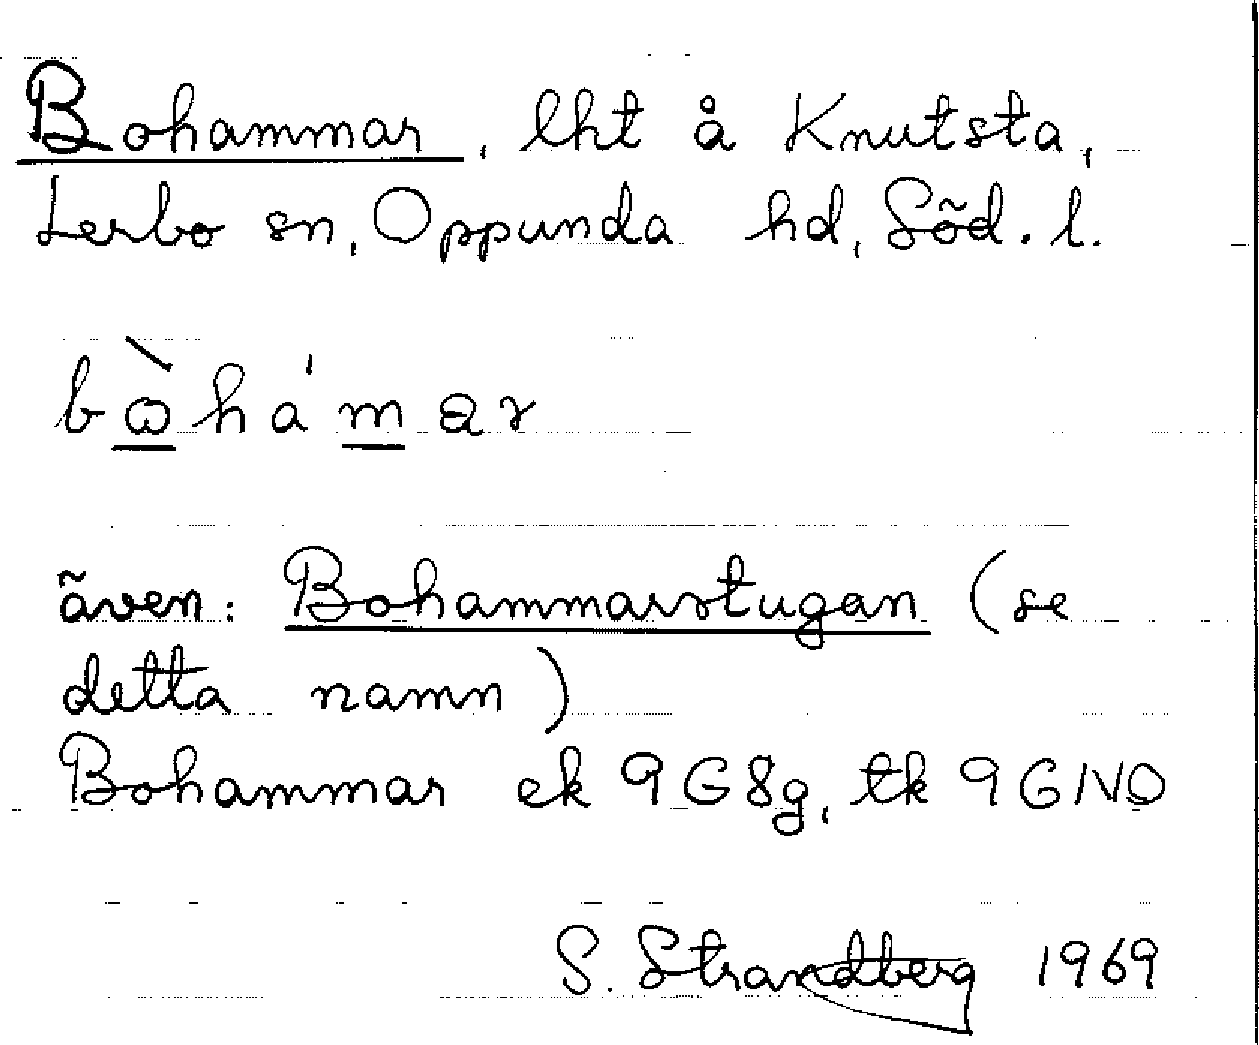 Bohammar, lht å Knutsta,
Lerbo sn, Oppunda hd, Söd. l.
bὼhám̲ar
även: Bohammarstugan (se
detta namn)
Bohammar ek 9G8g, tk 9GNO
S. Strandberg 1969